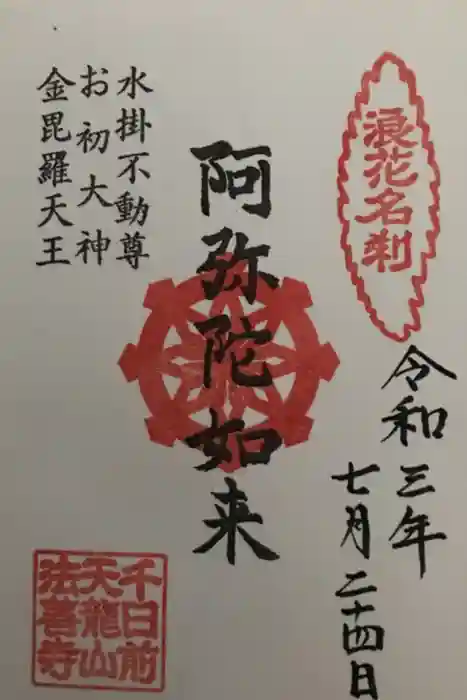 浪花名刹
令和三年
七月二十四日
阿弥陀如来
水掛不動尊
お初大神
金毘羅天王
千日前
天龍山
法善寺